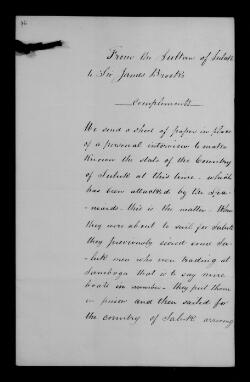 From the Sultan of Suluk
to Sir James Brooke
Compliments
We send a sheet of paper in place
of a personal interview to make
known the state of the Country
of Suluk at this time - which
has been attacked by the Spa-
-niards - this is the matter - When
they were about to sail for Suluk
they previously seized some Su-
-luk men who were trading at
Samboga that is to say nine
boats in number - they put them
in prison and then sailed for
the country of Suluk arriving